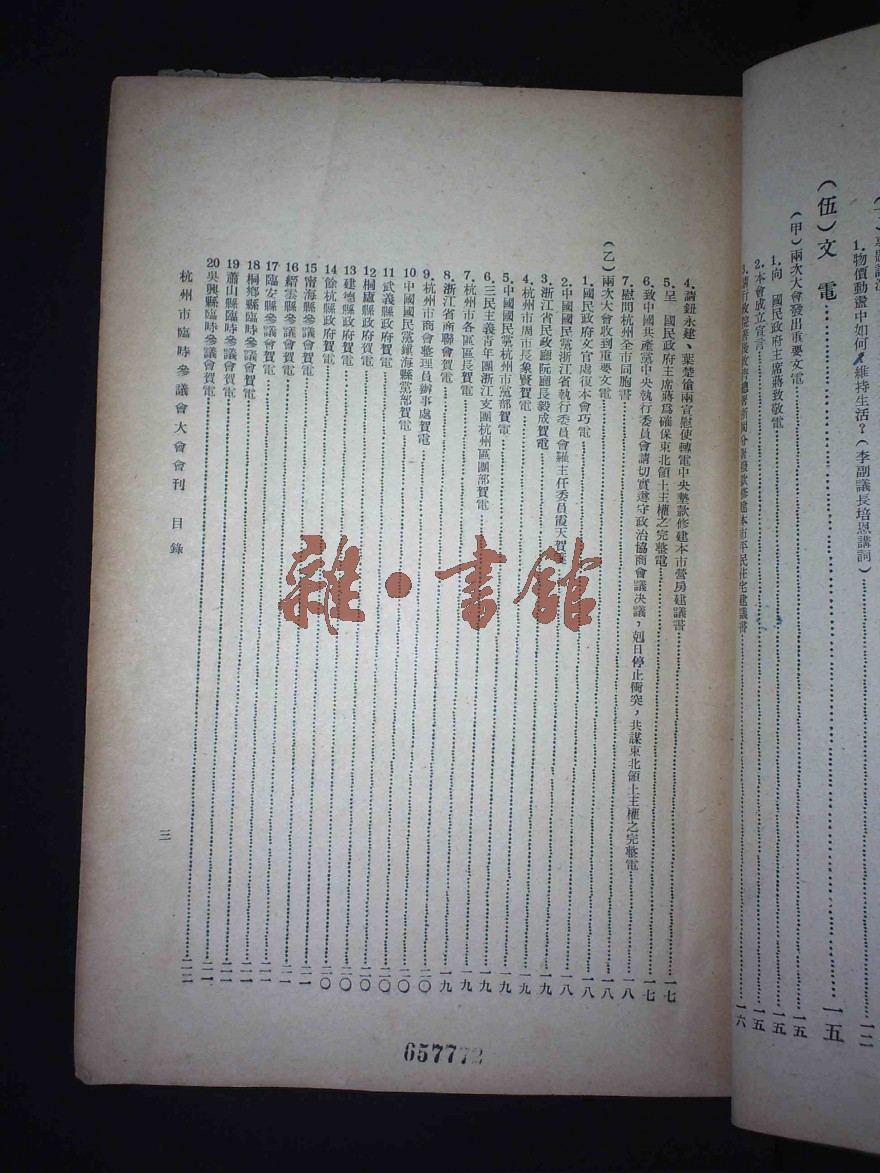 1.物價動盪中如何維持生活?(李副議長培恩講詞)……一二
(伍)文電……一五
(甲)兩次大會發出重要文電……一五
1.向 國民政府主席蔣致敬電……一五
2.本會成立宣言……一五
4.請鈕永建、葉楚傖兩宣慰使轉電中央墊款修建本市營房建議書……一七
5.呈 國民政府主席蔣爲確保東北領土主權之完整電……一七
6.致中國共產黨中央執行委員會請切實遵守政治協商會議决議,剋日停止衝突,共謀東北領土主權之完整電……一七
7.慰問杭州全市同胞書……一八
(乙)兩次大會收到重要文電……一八
1.國民政府文官處復本會巧電……一八
2.中國國民黨浙江省執行委員會羅主任委員霞天賀電……一八
3.浙江省民政廳阮廳長毅成賀電……一九
4.杭州市周市長象賢賀電……一九
5.中國國民黨杭州市黨部賀電……一九
6.三民主義青年團浙江支團杭州區團部賀電……一九
7.杭州市各區區長賀電……一九
8.浙江省商聯會賀電……一九
9.杭州市商會整理員辦事處賀電……二〇
10中國國民黨鎮海縣黨部賀電……二〇
11武義縣政府賀電……二〇
12桐廬縣政府賀電……二〇
13建德縣政府賀電……二〇
14餘杭縣政府賀電……二〇
15甯海縣參議會賀電……二一
16縉雲縣參議會賀電……二一
17臨安縣參議會賀電……二一
18桐鄉縣臨時參議會賀電……二一
19蕭山縣臨時參議會賀電……二一
20吳興縣臨時參議會賀電……二一
杭州市臨時參議會大會會刊 目錄
三
657772
雜·書館